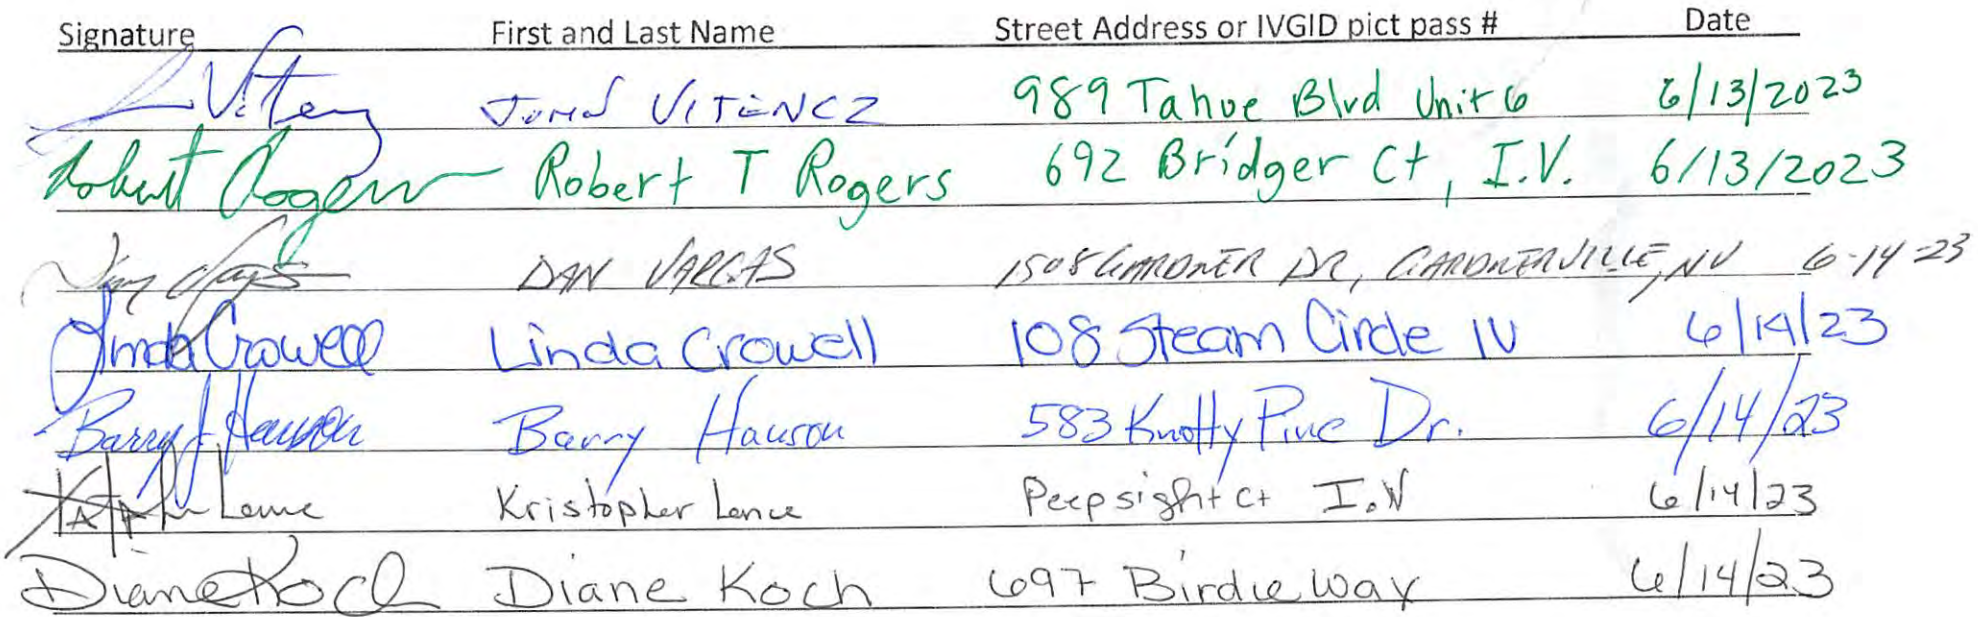 Signature First and Last Name Street Address or IVGID pict pass # Date
J Vitenz JOHN VITENCZ 989 Tahoe Blvd Unit 6 6/13/2023
Robert Rogers Robert T Rogers 692 Bridger Ct, I.V. 6/13/2023
DAN VARGAS 1508 GARDNER DR, GARDNERVILLE, NV 6-14-23
Linda Crowell Linda Crowell 108 Steam Circle IV 6/14/23
Barry J Hanson Barry Hanson 583 Knotty Pine Dr. 6/14/23
Lance Kristopher Lance Peepsight Ct I.V 6/14/23
Diane Koch Diane Koch 697 Birdie Way 6/14/23